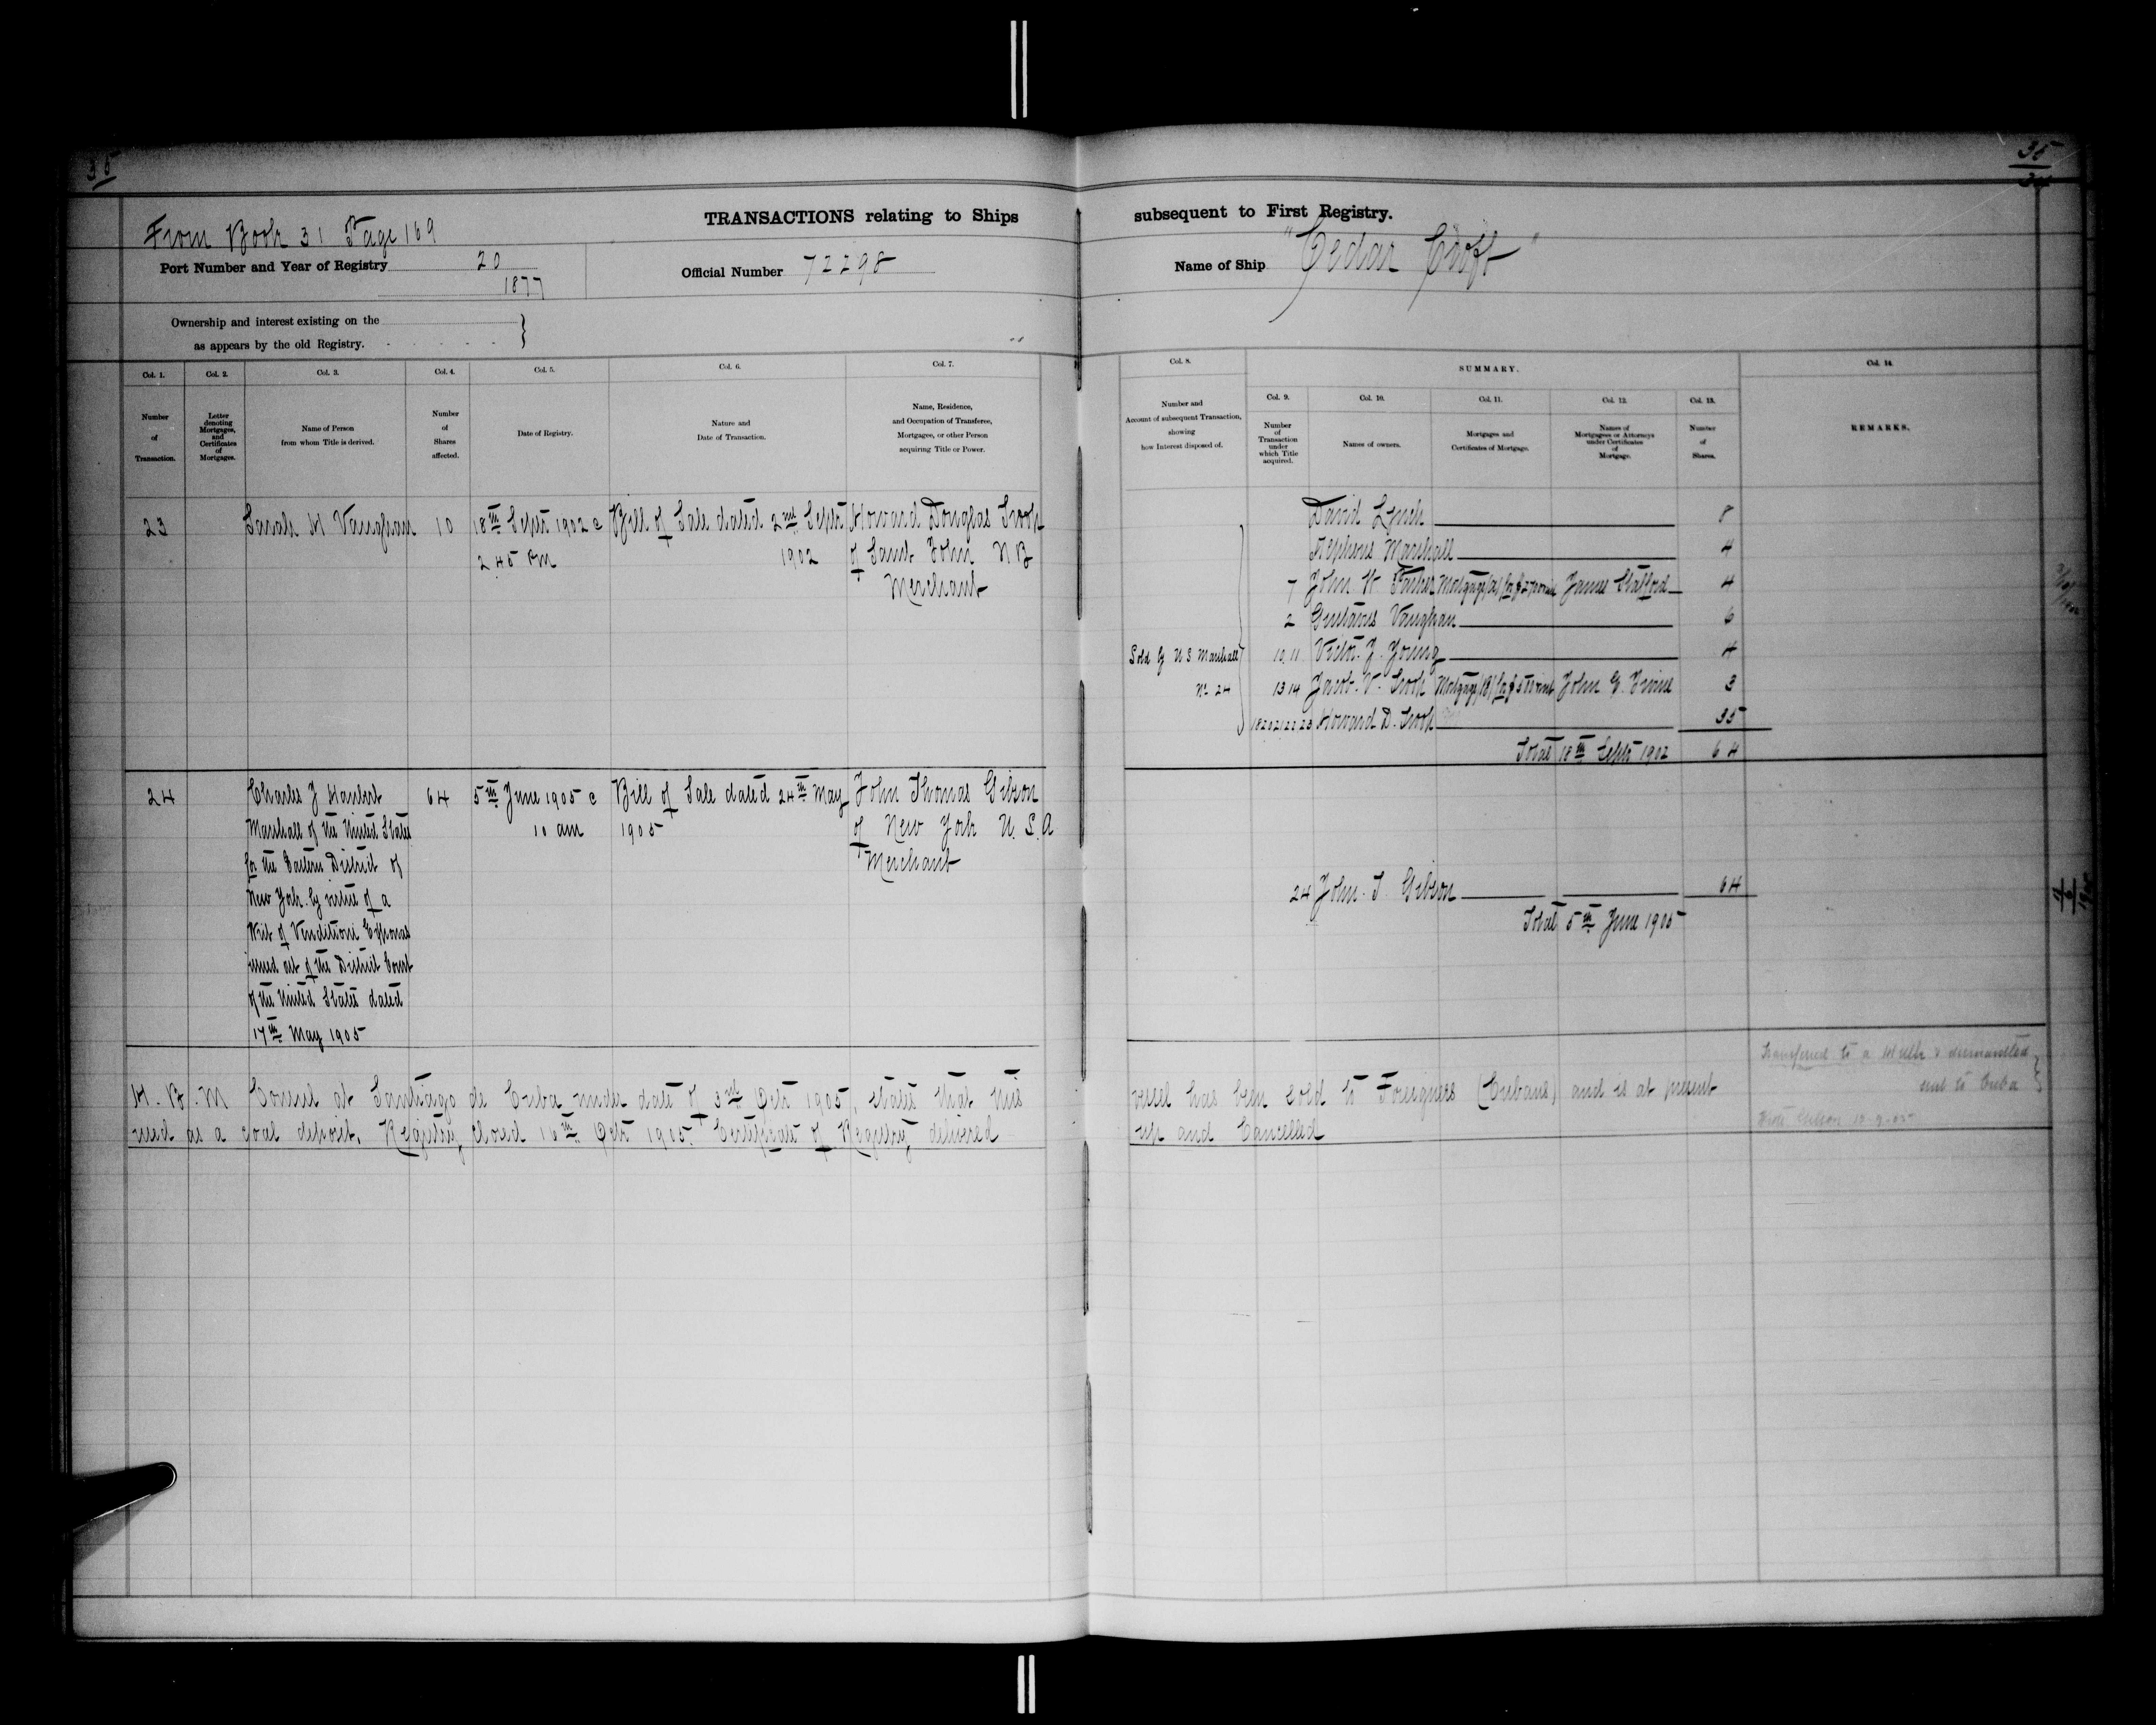 35
35
34
TRANSACTIONS relating to Ships subsequent to First Registry.
From Book 31 Page 169
Port Number and Year of Registry 20
1877
Official Number 72298
Name of Ship "Cedar Croft"
Ownership and interest existing on the
as appears by the old Registry.
Col. 1. Number of Transaction.
Col. 2. Letter denoting Mortgages, and Certificates of Mortgages.
Col. 3. Name of Person from whom Title is derived.
Col. 4. Number of Shares affected.
Col. 5. Date of Registry.
Col. 6. Nature and Date of Transaction.
Col. 7. Name, Residence, and Occupation of Transferee, Mortgagee, or other Person acquiring Title or Power.
Col. 8. Number and Account of subsequent Transaction, showing how Interest disposed of.
SUMMARY.
Col. 9. Number of Transaction under which Title acquired.
Col. 10. Names of owners.
Col. 11. Mortgages and Certificates of Mortgage.
Col. 12. Names of Mortgagees or Attorneys under Certificates of Mortgage.
Col. 13. Number of Shares.
Col. 14. REMARKS.
23 Sarah H Vaughan 10 18th Sept 1902 @ Bill of Sale dated 2nd Sept Howard Douglas Troop
2 45 PM 1902 of Saint John N B
Merchant
David Lynch 8
Stephens Marshall 4
7 John W Parker Mortgage (A) James Stafford 4
2 Gustavus Vaughan 6
Sold by U S Marshall 10 11 Victor J. Young 4
No 24 13 14 Jacob V. Troop Mortgage (B) John E. Irvine 3
18 20 21 22 23 Howard D. Troop 35
Total 18th Sept 1902 64
24 Charles J Haubert 64 5th June 1905 @ Bill of Sale dated 24th May John Thomas Gibson
Marshall of the United States 10 am 1905 of New York U. S. A
for the Eastern District of Merchant
New York by virtue of a
Writ of Venditioni Exponas
issued out of the District Court
of the United States dated
17th May 1905
24 John T Gibson 64
Total 5th June 1905
H. B. M Consul at Santiago de Cuba under date of 3rd Octr 1905, states that this vessel has been sold to Foreigners (Cubans) and is at present
used as a coal deposit. Registry closed 16th Octr 1905. Certificate of Registry delivered up and Cancelled
Transferred to a Hulk & dismantled
sent to Cuba
10-9-05